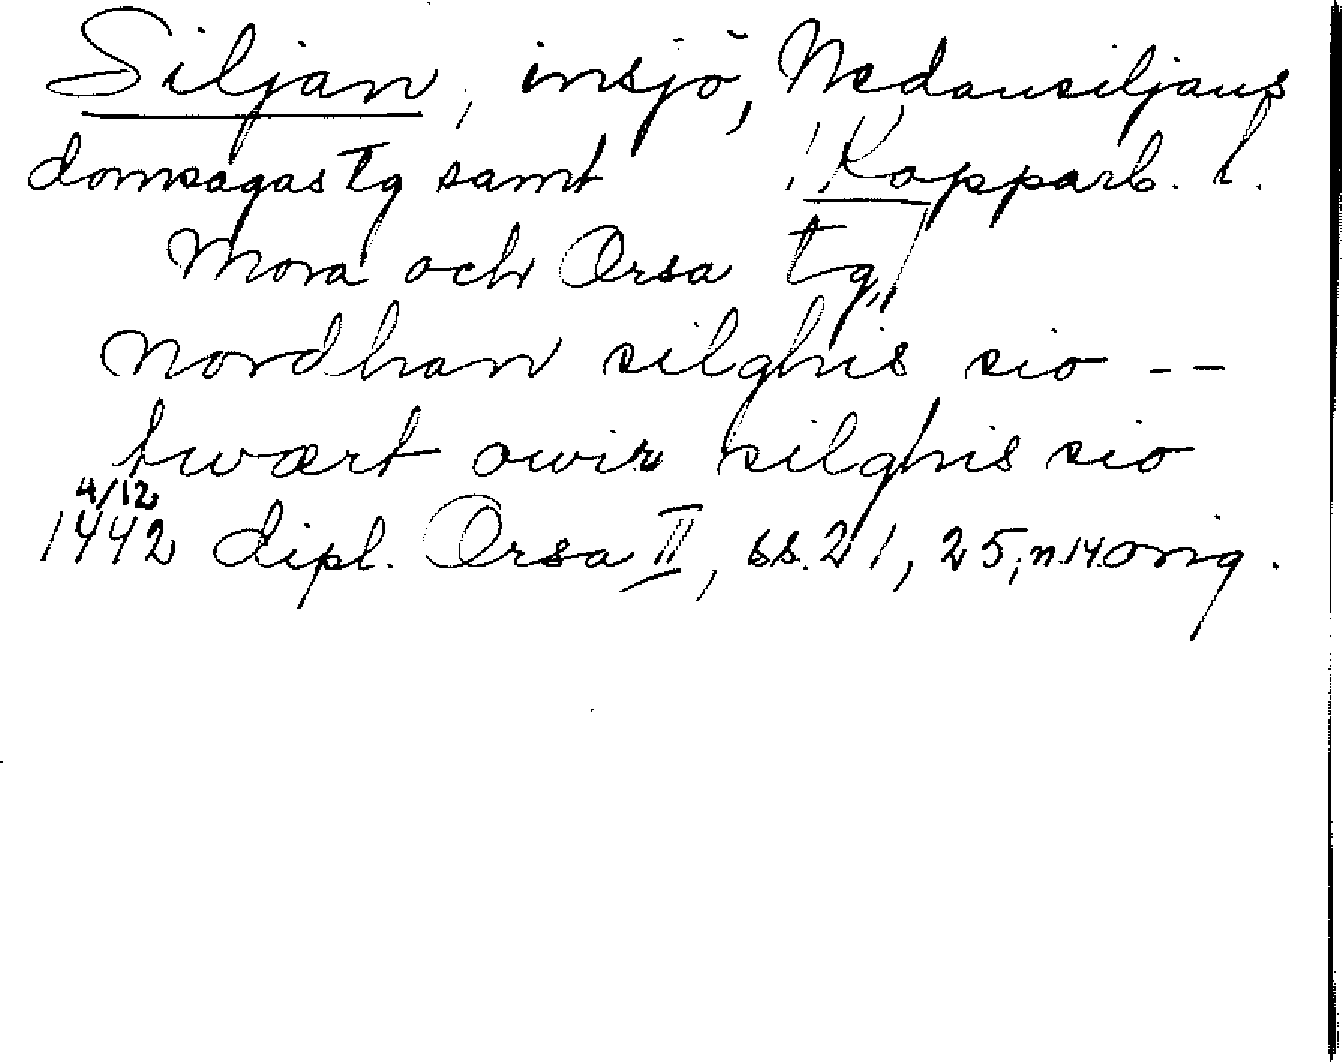 Siljan, insjö, Nedansiljans
domsagas tg samt Kopparb. l.
Mora och Orsa tg,
nordhan silghis sio --
twært owir silghis sio
4/12
1442 dipl. Orsa II, ss. 21, 25, n. 14 orig.